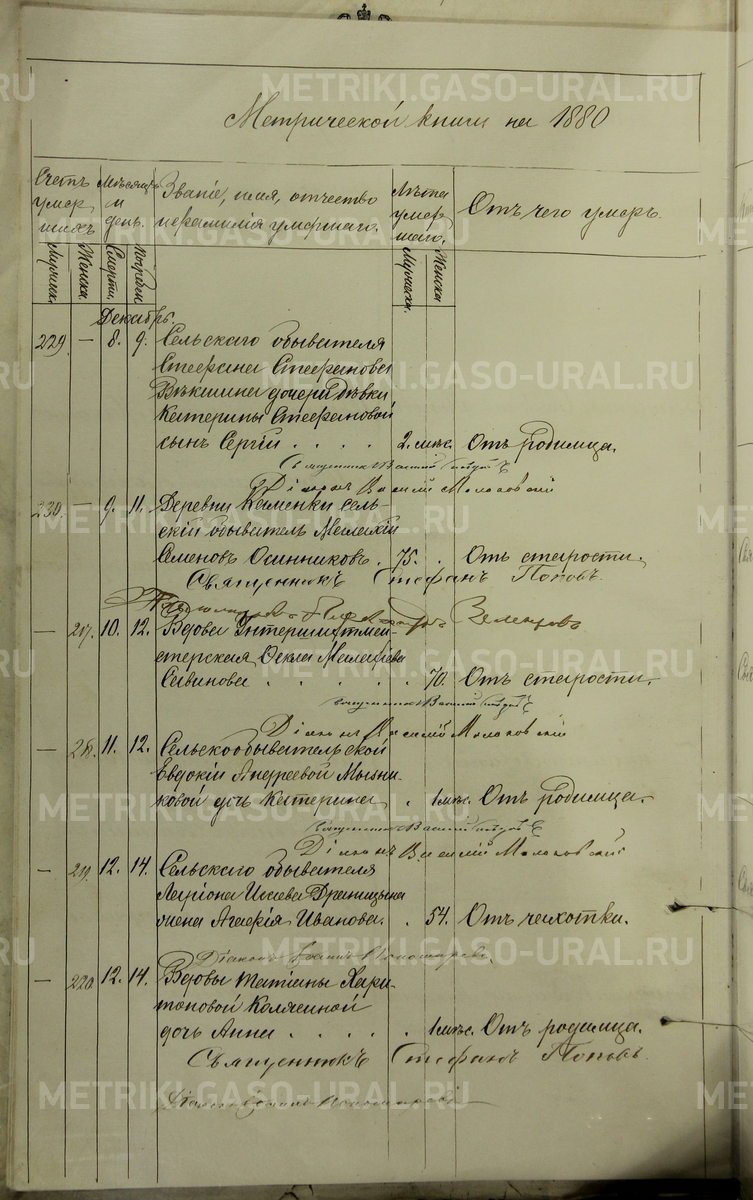 METRIKI.GASO-URAL.RU
Метрической книги на 1880
Счетъ умершихъ
Мѣсяцъ и день.
Званіе, имя, отчество и фамилія умершаго.
Лѣта умершаго.
Отъ чего умеръ.
Мужска. Женска. Смерти. Погребен. Мужска. Женска
Декабрь.
229. — 8. 9. Сельскаго обывателя
Стефана Стефанова
Вѣкшина дочери дѣвки
Катерины Стефановой
сынъ Сергій . . . . 2. мѣс. Отъ родимца.
Священникъ Василій
Діаконъ Василій Молоковскій
230 — 9. 11. Деревни Каменки сель-
скій обыватель Малахій
Семеновъ Осинниковъ. 75. . Отъ старости.
Священникъ Стефанъ Поповъ.
— 217. 10. 12. Вдова Унтершихтмей-
стерская Фекла Малафіева
Савинова . . . . . . 70. Отъ старости.
Священникъ Василій
Діаконъ Василій Молоковскій
— 218. 11. 12. Сельскообывательской
Евдокіи Андреевой Мызни-
ковой дочь Катерина . 1 мѣс. Отъ родимца.
Священникъ Василій
Діаконъ Василій Молоковскій
— 219. 12. 14. Сельскаго обывателя
Ларіона Исаева Драницына
жена Агафія Иванова. . 54. Отъ чахотки.
Діаконъ Пономаревъ.
— 220 12. 14. Вдовы Татіаны Хари-
тоновой Калягиной
дочь Анна . . . . . 1 мѣс. Отъ родимца.
Священникъ Стефанъ Поповъ.
Діаконъ Пономаревъ